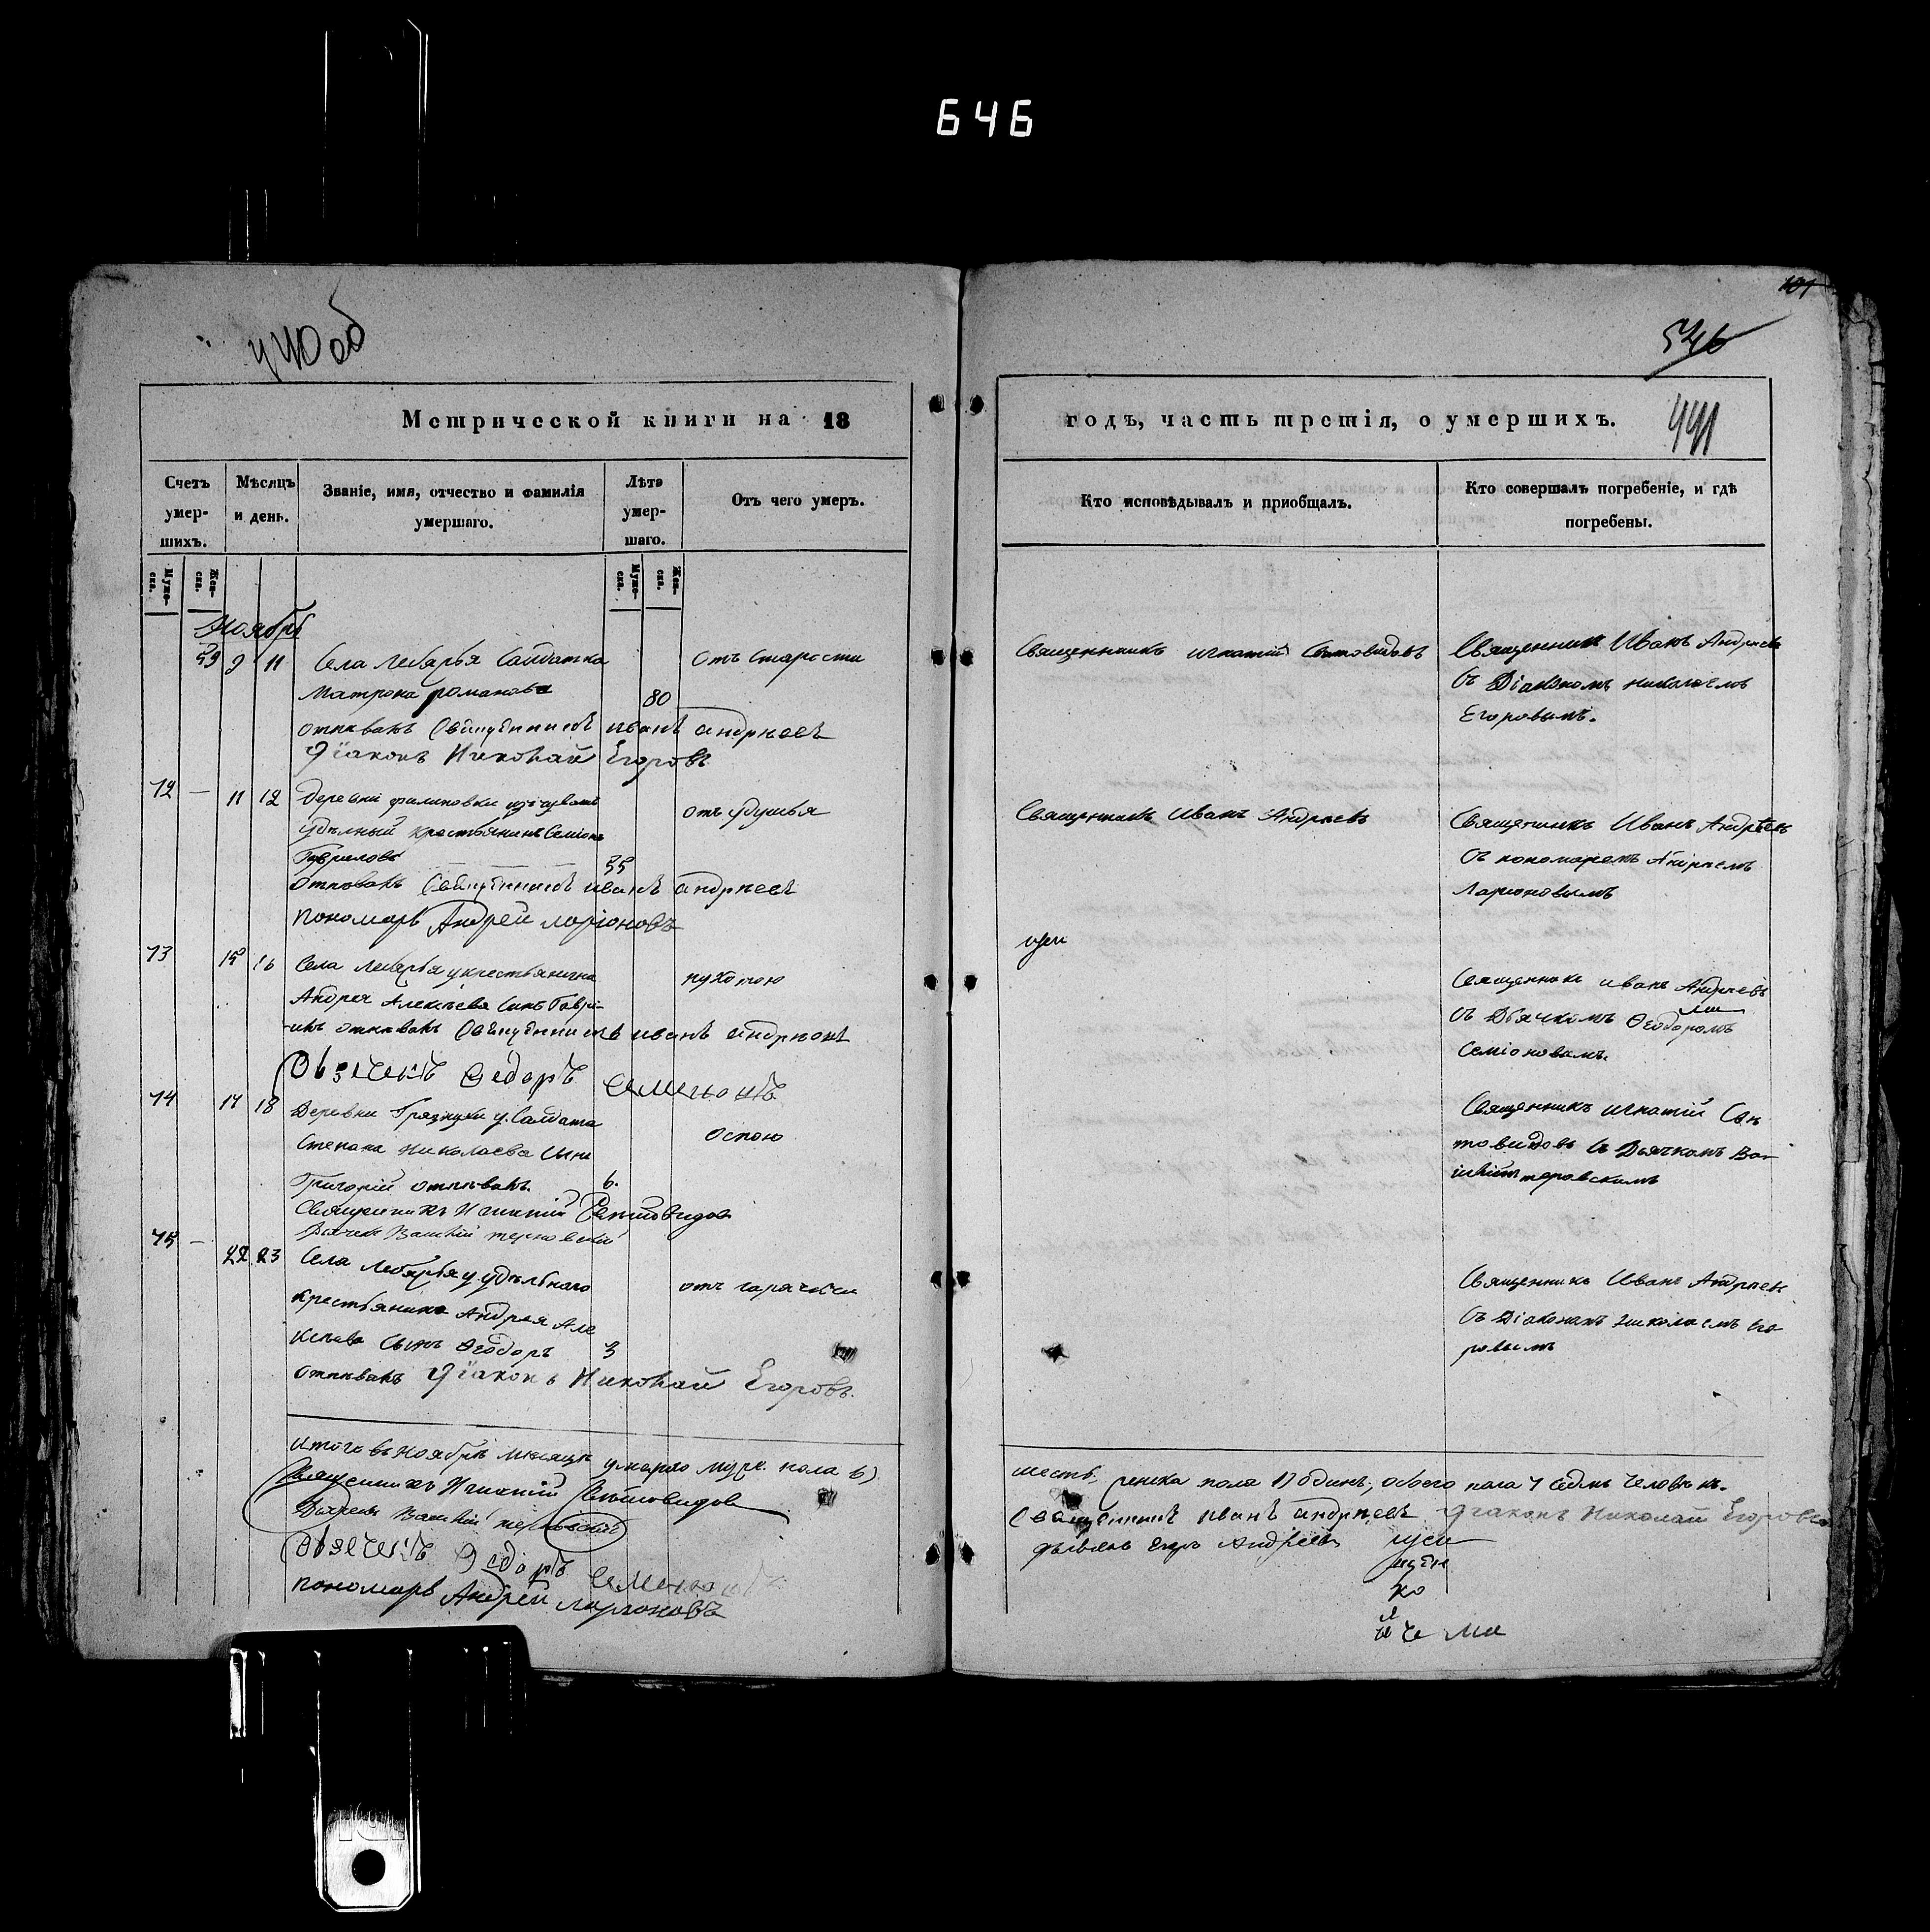 646
440 об
Метрической книги на 18
Счетъ умер-шихъ.
Мѣсяцъ и день.
Званіе, имя, отчество и фамилія умершаго.
Лѣта умер-шаго.
Отъ чего умеръ.
Муже-ска.
Жен-ска.
Муже-ска.
Жен-ска.
Ноябрь
59 9 11 Села Лебяжья Салдатка отъ старости
Матрона Романова 80
отпѣвалъ Священникъ Иванъ Андреевъ
Діаконъ Николай Егоровъ
72 — 11 12 Деревни
удѣльный крестьянинъ Семіонъ отъ удушья
Гавриловъ 55
отпѣвалъ Священникъ Иванъ Андреевъ
пономарь Андрей Ларіоновъ
73 15 16 Села Лебяжья у крестьянина
Андрея Алексѣева сынъ Гаври-
илъ отпѣвалъ Священникъ Иванъ Андреевъ
Федоръ Семеновъ
74 17 18 Деревни Грязнухи у Салдата
Степана Николаева сынъ оспою
Григорій отпѣвалъ. 6.
Священникъ Игнатій Святовидовъ
Дьячекъ Терновскій
75 — 22 23 Села Лебяжья у удѣльнаго
крестьянина Андрея Але отъ горячки
ксѣева сынъ Ѳеодоръ 3
отпѣвалъ Діаконъ Николай Егоровъ.
Итого въ ноябрѣ мѣсяцѣ умерло муж. пола 6)
Священникъ Игнатій Святовидовъ
Дьячекъ Терновскій
Федоръ Семеновъ
пономарь Андрей Ларіоновъ
546
441
годъ, часть третія, о умершихъ.
Кто исповѣдывалъ и приобщалъ.
Кто совершалъ погребеніе, и гдѣ погребены.
Священникъ Игнатій Святовидовъ
Священникъ Иванъ Андреевъ
съ Діакономъ Николаемъ
Егоровымъ.
Священникъ Иванъ Андреевъ
Священникъ Иванъ Андреевъ
съ пономаремъ Андреемъ
Ларіоновымъ
Священникъ Иванъ Андреевъ
съ Дьячкомъ Ѳеодоромъ
Семіоновымъ.
Священникъ Игнатій Свя
товидовъ съ Дьячкомъ Ва-
Священникъ Иванъ Андреевъ
съ Діакономъ Николаемъ Его
ровымъ
шесть. женска пола 1) одинъ, обоего пола 7 седмь человѣкъ.
Священникъ Иванъ Андреевъ Діаконъ Николай Егоровъ
Андреевъ